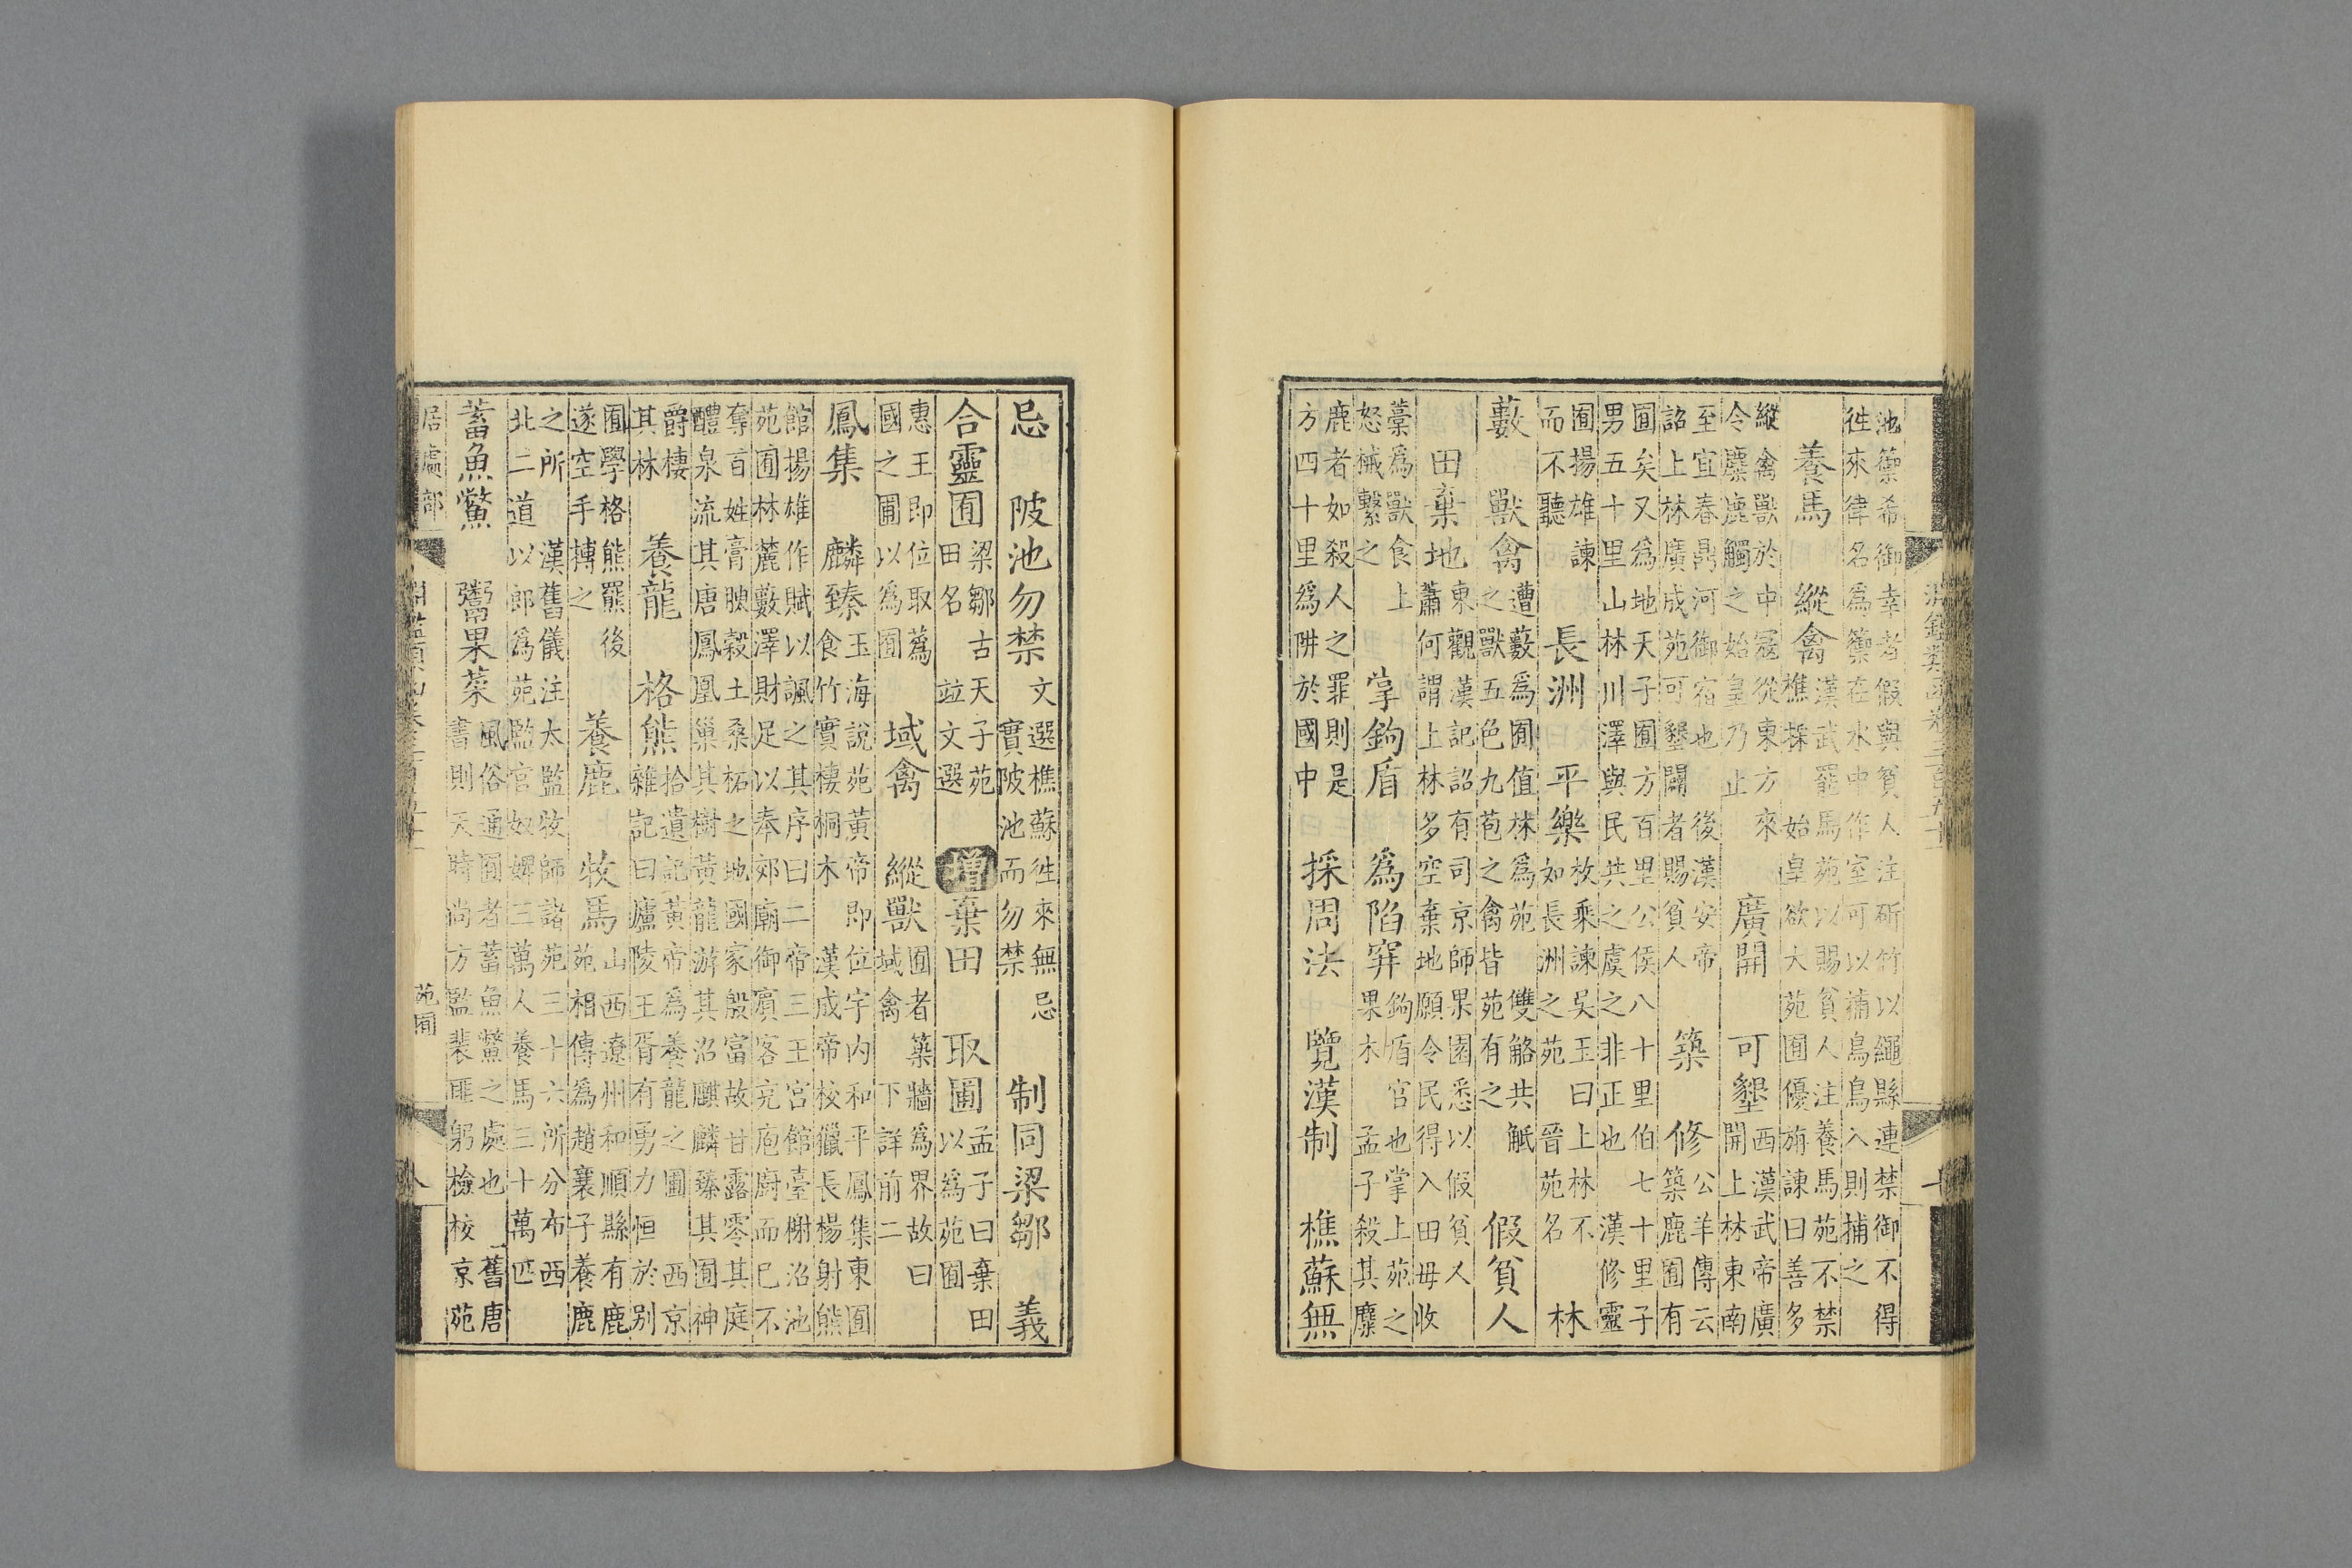 池籞希御幸者假與貧人注斫竹以繩縣連禁御不得
徃來律名為籞在水中作室可以捕鳥鳥入則捕之
養馬　縱禽　漢武罷馬苑以賜貧人注養馬苑不禁
樵採　始皇欲大苑囿優旃諫曰善多
縱禽獸於中寇從東方來
令麋鹿觸之始皇乃止　廣開　可墾　西漢武帝廣
開上林東南
至宜春鼎河御宿也　後漢安帝
詔上林廣成苑可墾闢者賜貧人　築　修　公羊傳云
築鹿囿有
囿矣又為地天子囿方百里公侯八十里伯七十里子
男五十里山林川澤與民共之虞之非正也　漢修靈
囿揚雄諫
而不聽　長洲　平樂　枚乘諫吳王曰上林不
如長洲之苑　晉苑名　林
藪　獸禽　遭藪為囿值林為苑　雙觡共觝
之獸五色九苞之禽皆苑有之　假貧人
田棄地　東觀漢記詔有司京師果園悉以假貧人
蕭何謂上林多空棄地願令民得入田毋收
藁為獸食上
怒械繫之　掌鉤盾　為陷穽　鉤盾官也掌上苑之
果木　孟子殺其麋
鹿者如殺人之罪則是
方四十里為阱於國中　採周法　覽漢制　樵蘇無
忌　陂池勿禁　文選樵蘇徃來無忌
實陂池而勿禁　制同梁鄒　義
合靈囿　梁鄒古天子苑
田名　竝文選　增　棄田　取圃　孟子曰棄田
以為苑囿
惠王即位取蔿
國之圃以為囿　域禽　縱獸　囿者築牆為界故曰
域禽　下詳前二
鳳集　麟臻　玉海說苑黃帝即位宇内和平鳳集東囿
食竹實棲桐木　漢成帝校獵長楊射熊
館揚雄作賦以諷之其序曰二帝三王宮館臺榭沼池
苑囿林麓藪澤財足以奉郊廟御賓客充庖廚而已不
奪百姓膏腴榖土桑柘之地國家殷富故甘露零其庭
醴泉流其唐鳳凰巢其樹黃龍游其沼麒麟臻其囿神
爵棲
其林　養龍　格熊　拾遺記黃帝為養龍之圃　西京
雜記曰廬陵王胥有勇力恒於别
囿學格熊羆後
遂空手搏之　養鹿　牧馬　山西遼州和順縣有鹿
苑相傳為趙襄子養鹿
之所　漢舊儀注太監牧師諸苑三十六所分布西
北二道以郎為苑監官奴婢三萬人養馬三十萬匹
蓄魚鱉　鬻果菜　風俗通囿者蓄魚鱉之處也　舊唐
書則天時尚方監裴匪躬檢校京苑
居處部　苑囿